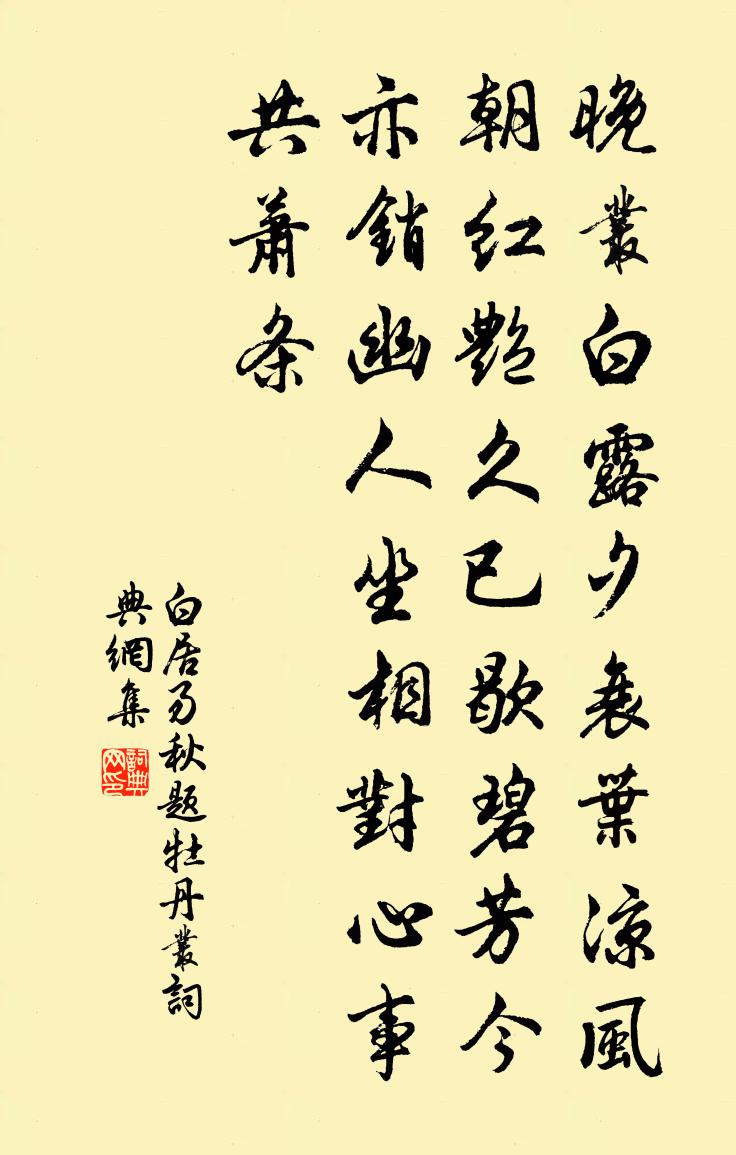 晚叢白露夕衰葉涼風
朝紅艷久已歇碧芳今
亦銷幽人坐相對心事
共蕭条
白居易秋題牡丹叢詞
典網集
詞典
网印